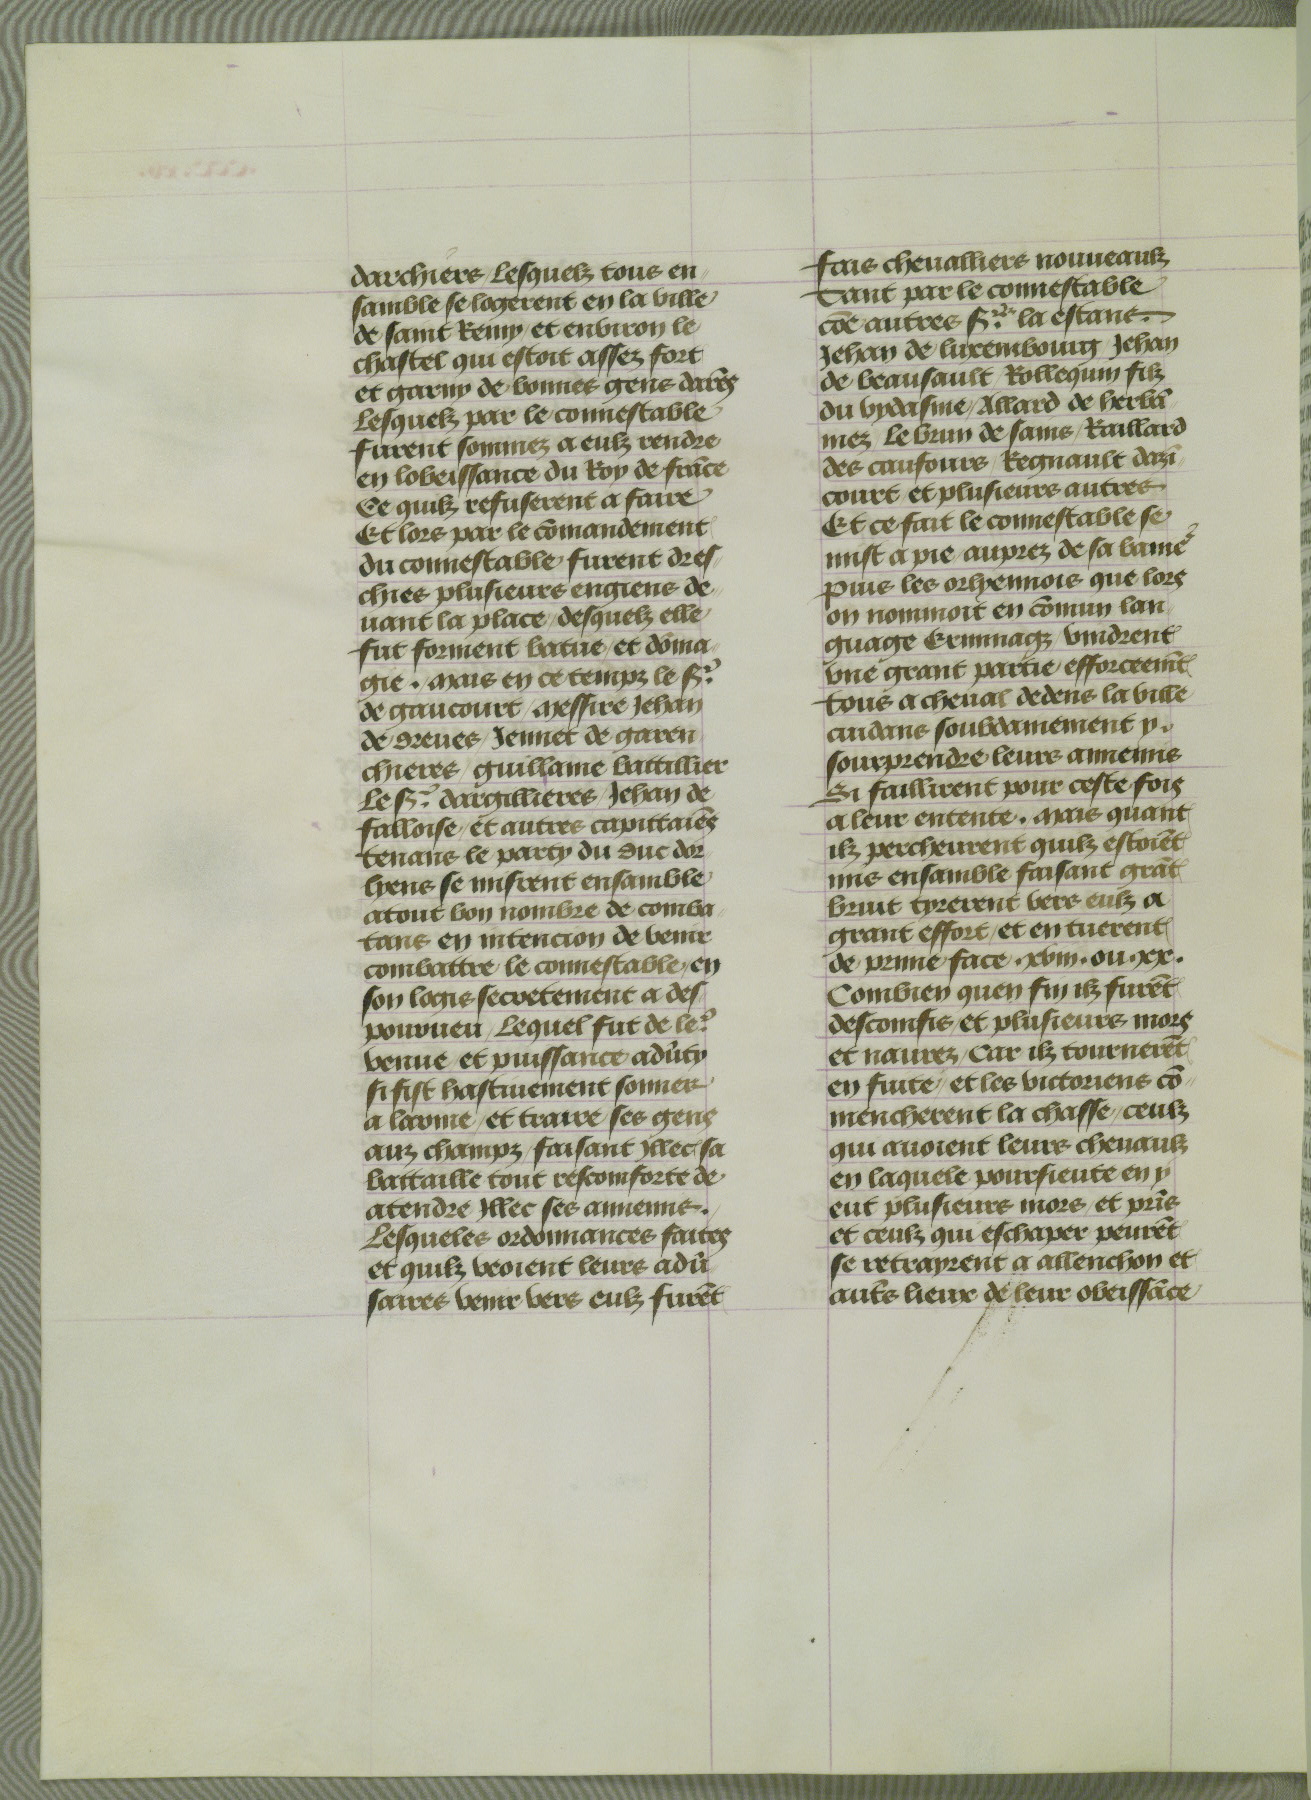 darchiers / Lesquelz tous en-
samble se logerent en la ville
de saint Remy / et environ le
chastel qui estoit assez fort
et garny de bonnes gens darẽs
Lesquelz par le connestable
furent sommez a eulz rendre
en lobeissance du Roy de frãce
Ce quilz refuserent a faire
Et lors par le cõmandement
du connestable furent dres-
chies plusieurs engiens de-
uant la place / desquelz elle
fut forment batue / et dõma-
gie . Mais en ce tempz le sr̃
de gaucourt / Messire Jehan
de dreues / Jennet de garen-
chieres / guillame battillier
Le sr̃ dargillieres / Jehan de
falloise / et autres capittaiẽs
tenans le party du duc dor-
lyens se misrent ensamble
atout bon nombre de comba-
tans en intencion de venir
combattre le connestable / en
son logis secretement a des-
pourueu / Lequel fut de le2
venue et puissance adũty
si fist hastiuement sonner
a larme / et traire ses gens
auz champz / faisant Jllec sa
battaille tout resconforte de
atendre Jllec ses annemis .
Lesqueles ordonnances faites
et quilz veoient leurs adũ-
saires venir vers eulz furẽt
fais cheualliers nouueaulz
Tant par le connestable
cõe autres srs̃ la estans
Jehan de luxembourg Jehan
de beausault / Rollequin filz
du vydasme / Allard de herbã-
mez / Le brun de sains / Raillard
des caufours / Regnault dazĩ-
court et plusieurs autres
Et ce fait le connestable se
mist a pie auprez de sa baniẽ
Puis les orlyennois que lors
on nommoit en cõmun lan-
guage Erminagz / vindrent
vne grant partie / efforceemẽt
tous a cheual dedens la ville
cuidans soubdainement y .
sourprendre leurs annemis
Si faillirent pour ceste fois
a leur entente . Mais quant
ilz percheurent quilz estoiẽt
mis ensamble faisant grãt
bruit tyrerent vers eulz a
grant effort / et en tuerent
de prime face . xviii . ou . xx .
Combien quen fin ilz furẽt
desconfis / et plusieurs mors
et naurez / Car ilz tournerẽt
en fuite / et les victoriens cõ-
mencherent la chasse / ceulz
qui auoient leurs cheuaulz
en laquele poursieute en y
eut plusieurs mors / et prĩs
et ceulz qui eschaper peurẽt
se retrayrent a allenchon et
autr̃s lieux de leur obeissãce